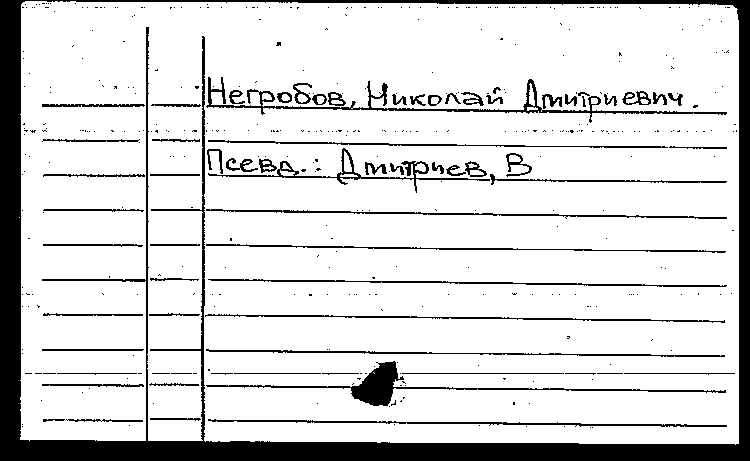 Негробов, Николай Дмитриевич.
Псевд.: Дмитриев, В